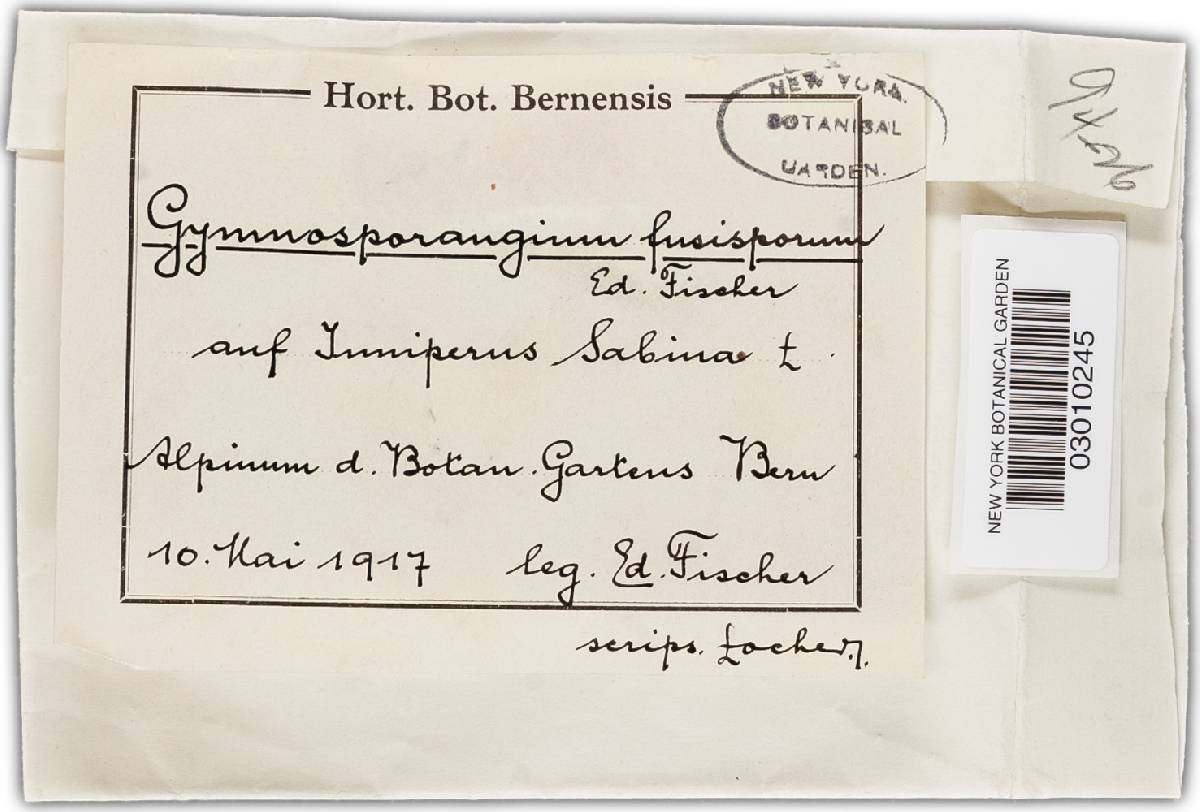 Hort. Bot. Bernensis
NEW YORK
BOTANICAL
GARDEN.
Gymnosporangium fusisporum
Ed. Fischer
auf Juniperus Sabina L.
Alpinum d. Botan. Gartens Bern
10. Mai 1917 leg. Ed. Fischer
scrips. Locher.
NEW YORK BOTANICAL GARDEN
03010245